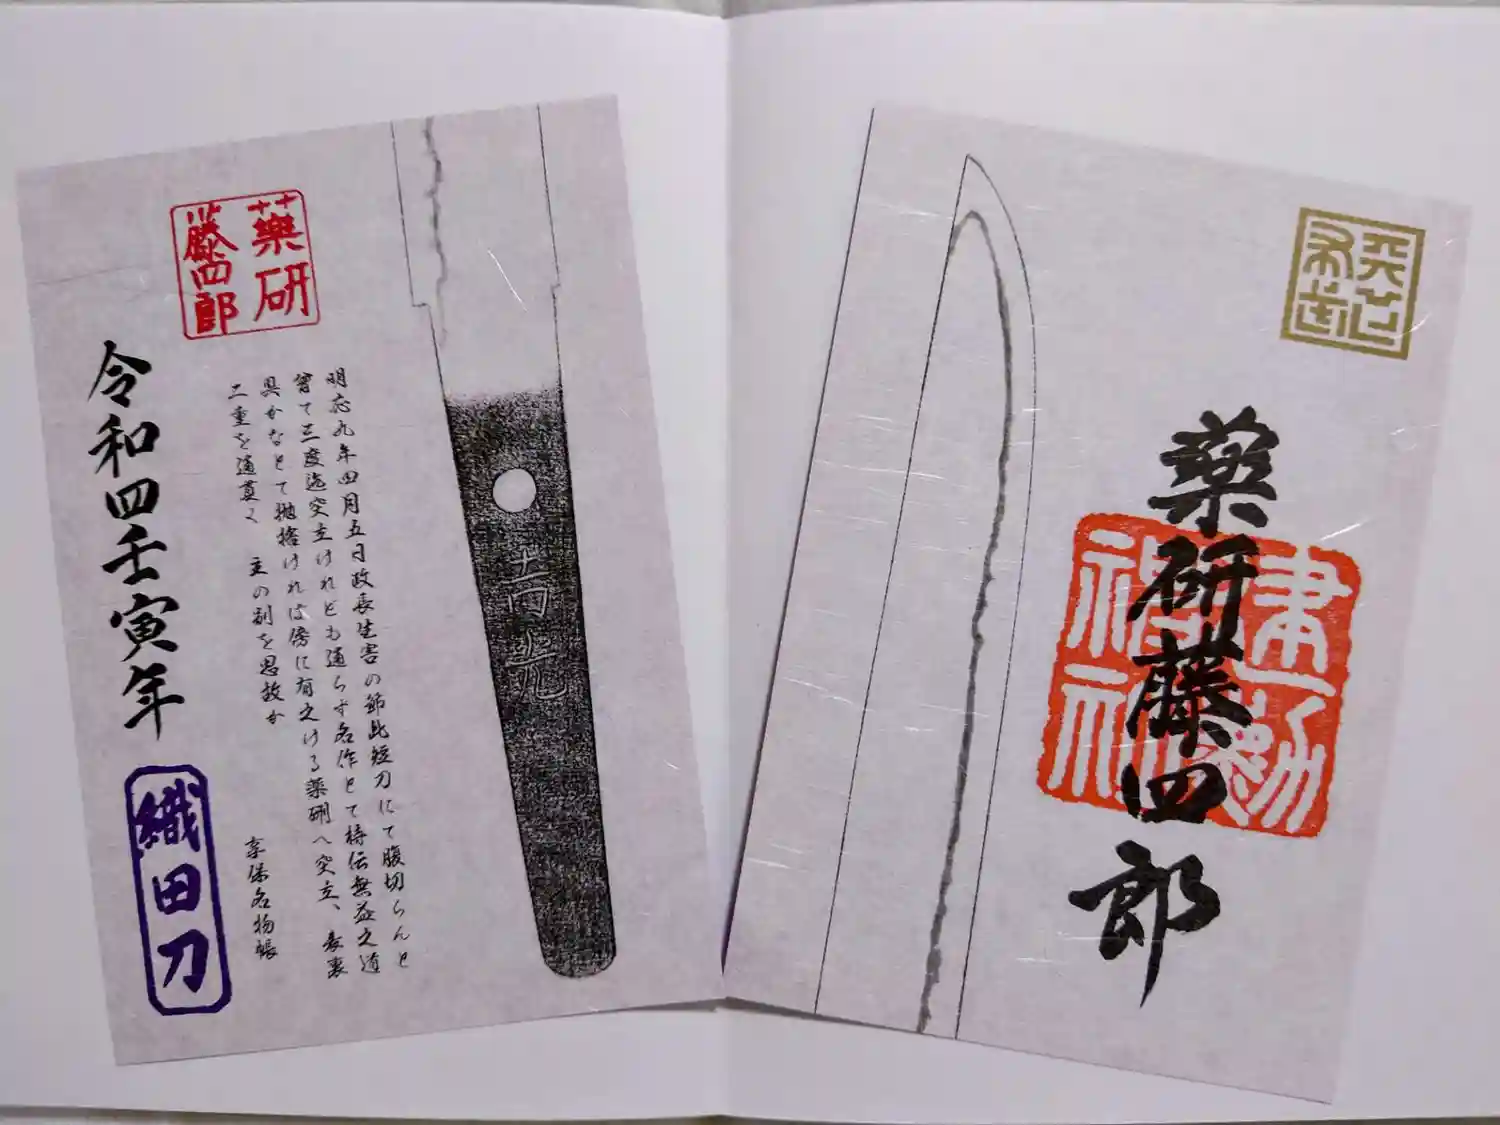 薬研
藤四郎
明応九年四月五日政長生害の節此短刀にて腹切らんと
曽て三度迄突立けれども通らず名作とて持伝無益之道
具かなとて抛捨けれは傍に有之ける薬研へ突立、表裏
二重を通貫く 主の別を思故か
享保名物帳
令和四壬寅年
織田刀
吉光
天下布武
薬研藤四郎
建勲
神社